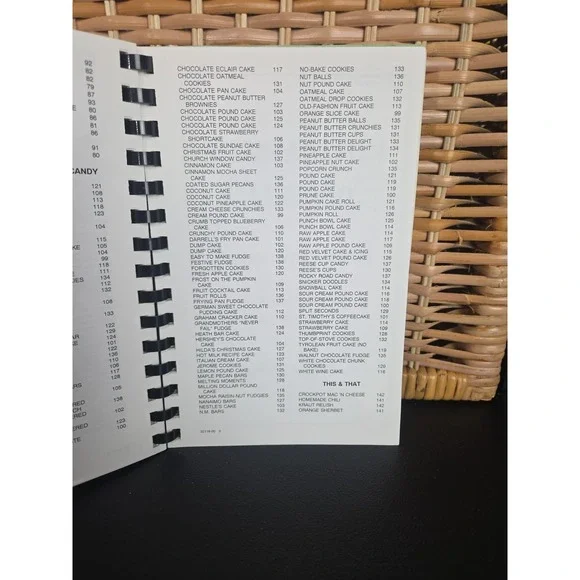 92
82
82
79
87
93
80
86
91
80
CANDY
121
108
111
118
123
104
111
122
134
108
133
122
103
123
100
CHOCOLATE ECLAIR CAKE 117
CHOCOLATE OATMEAL
COOKIES 131
CHOCOLATE PAN CAKE 104
CHOCOLATE PEANUT BUTTER
BROWNIES 127
CHOCOLATE POUND CAKE 103
CHOCOLATE POUND CAKE 125
CHOCOLATE POUND CAKE 124
CHOCOLATE STRAWBERRY
SHORTCAKE 106
CHOCOLATE SUNDAE CAKE 108
CHRISTMAS FRUIT CAKE 102
CHURCH WINDOW CANDY 137
CINNAMON CAKE 103
CINNAMON MOCHA SHEET
CAKE 125
COATED SUGAR PECANS 136
COCONUT CAKE 111
COCONUT CAKE 120
COCONUT PINEAPPLE CAKE 122
CREAM CHEESE CRUNCHIES 133
CREAM POUND CAKE 99
CRUMB TOPPED BLUEBERRY
CAKE 106
CRUNCHY POUND CAKE 110
DARRELL'S FRY PAN CAKE 101
DUMP CAKE
DUMP CAKE
EASY TO MAKE FUDGE 138
FESTIVE FUDGE 136
FORGOTTEN COOKIES 130
FRESH APPLE CAKE 120
FROST ON THE PUMPKIN
CAKE
FRUIT COCKTAIL CAKE 113
FRUIT ROLLS 136
FRYING PAN FUDGE 137
GERMAN SWEET CHOCOLATE
PUDDING CAKE 112
GRAHAM CRACKER CAKE 110
GRANDMOTHERS 'NEVER
FAIL' FUDGE 138
HEATH BAR CAKE 124
HERSHEY'S CHOCOLATE
CAKE 104
HILDA'S CHRISTMAS CAKE 127
HOT MILK RECIPE CAKE 133
ITALIAN CREAM CAKE 107
JEROME COOKIES 131
LEMON POUND CAKE 125
MAPLE PECAN BARS 130
MELTING MOMENTS 128
MILLION DOLLAR POUND
CAKE 118
MOCHA RAISIN-NUT FUDGIES 135
NANAIMO BARS 127
NESTLE'S CAKE 103
N.M. BARS 132
NO-BAKE COOKIES 133
NUT BALLS 136
NUT POUND CAKE 110
OATMEAL CAKE 107
OATMEAL DROP COOKIES 132
OLD-FASHION FRUIT CAKE 113
ORANGE SLICE CAKE 99
PEANUT BUTTER BALLS 135
PEANUT BUTTER CRUNCHIES 131
PEANUT BUTTER CUPS 131
PEANUT BUTTER DELIGHT 133
PEANUT BUTTER DELIGHT 134
PINEAPPLE CAKE 111
PINEAPPLE NUT CAKE 102
POPCORN CRUNCH 135
POUND CAKE 121
POUND CAKE 119
POUND CAKE 119
PRUNE CAKE 100
PUMPKIN CAKE ROLL 121
PUMPKIN POUND CAKE 118
PUMPKIN ROLL 126
PUNCH BOWL CAKE 125
PUNCH BOWL CAKE 114
RAW APPLE CAKE 114
RAW APPLE CAKE 117
RAW APPLE POUND CAKE 109
RED VELVET CAKE 116
RED VELVET CAKE & ICING 116
REESE CUP CANDY 137
REESE'S CUPS 130
ROCKY ROAD CANDY 137
SNICKER DOODLES 134
SNOWBALL CAKE 114
SOUR CREAM POUND CAKE 118
SOUR CREAM POUND CAKE 100
SOUR CREAM POUND CAKE 118
SPLIT SECONDS 129
ST. TIMOTHY'S COFFEECAKE 101
STRAWBERRY CAKE 114
STRAWBERRY CAKE 109
THUMBPRINT COOKIES 128
TOP-OF STOVE COOKIES 132
TYROLEAN FRUIT CAKE (NO
BAKE) 119
WALNUT CHOCOLATE FUDGE 135
WHITE CHOCOLATE CHUNK
COOKIES 126
WHITE WINE CAKE 116
THIS & THAT
CROCKPOT MAC 'N CHEESE 142
HOMEMADE CHILI 141
KRAUT RELISH 141
ORANGE SHERBET 141